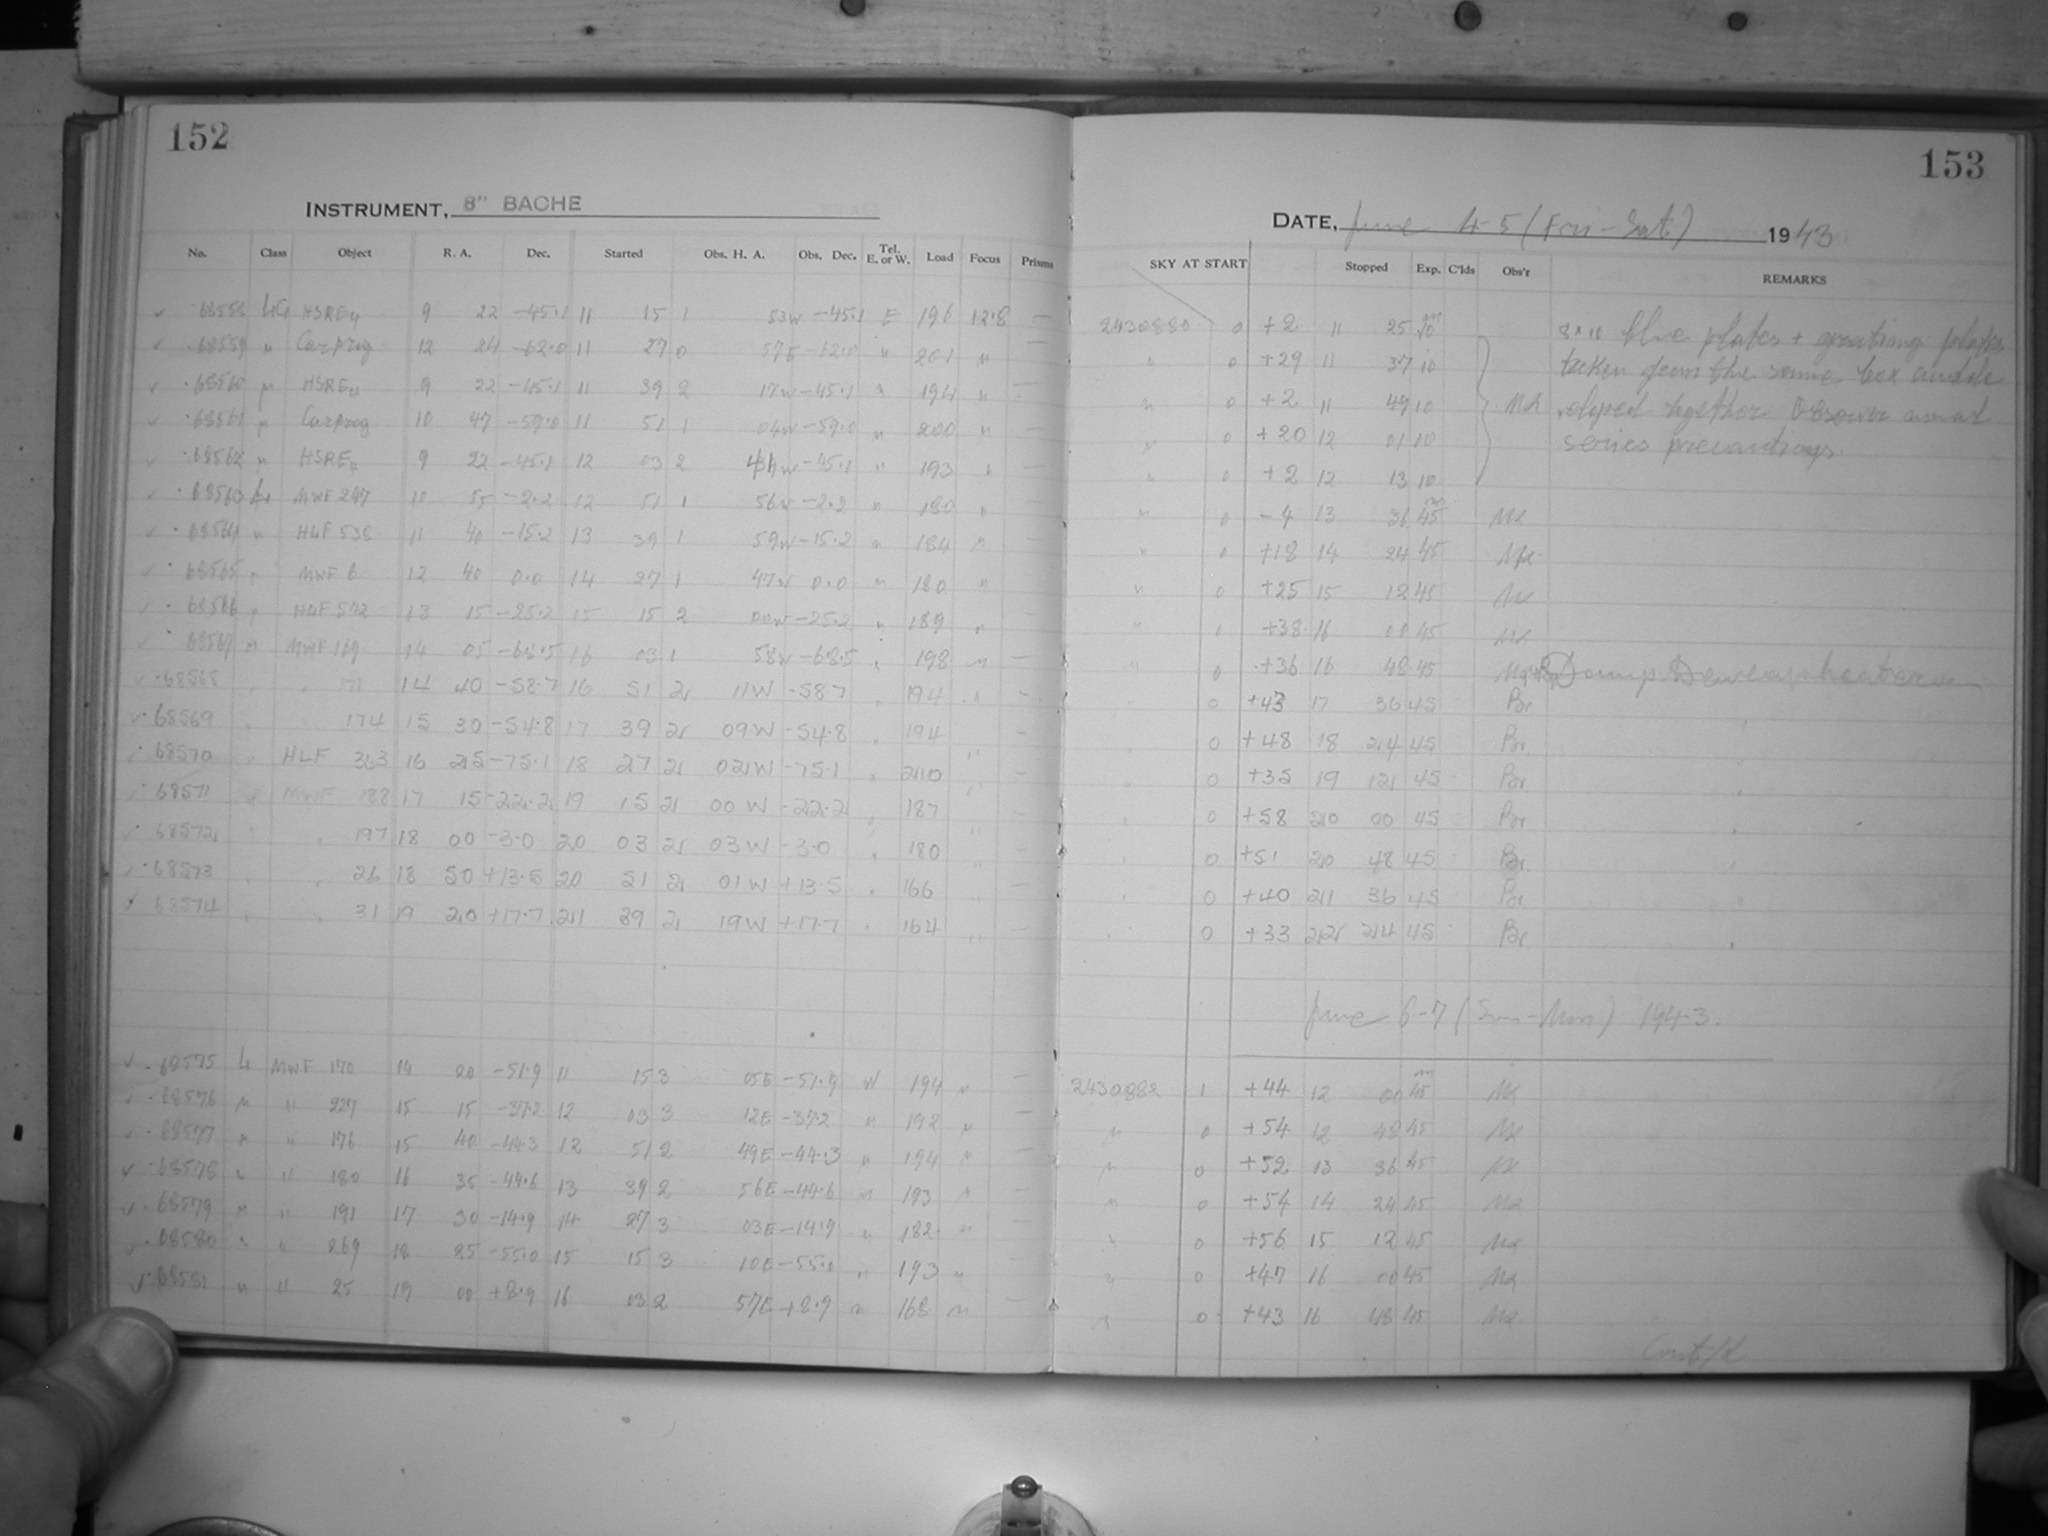 152
INSTRUMENT, 8" BACHE
No. Class Object R. A. Dec. Started Obs. H. A. Obs. Dec. Tel. E. or W. Load Focus Prisms
68558 HSRE4 9 22 -45.1 11 15 1 53W -45.1 E 196 12.8 —
68559 " Carprog 12 24 -62.0 11 27 0 57E -62.0 " 201 " —
68560 " HSRE4 9 22 -45.1 11 39 2 17W -45.1 " 194 " —
68561 " Carprog 10 47 -59.0 11 51 1 04W -59.0 " 200 " —
68562 " HSRE4 9 22 -45.1 12 03 2 41W -45.1 " 193 " —
68563 MWF 247 10 55 -2.2 12 51 1 56W -2.2 " 180 " —
68564 " HLF 538 11 40 -15.2 13 39 1 59W -15.2 " 184 " —
68565 " MWF 6 12 40 0.0 14 27 1 47W 0.0 " 180 " —
68566 " HLF 572 13 15 -25.2 15 15 2 00W -25.2 " 189 " —
68567 " MWF 169 14 05 -68.5 16 03 1 58W -68.5 " 198 " —
68568 " " 171 14 40 -58.7 16 51 2 11W -58.7 " 194 " —
68569 " 174 15 30 -54.8 17 39 2 09W -54.8 " 194 —
68570 " HLF 363 16 25 -75.1 18 27 2 02W -75.1 " 210 " —
68571 " MWF 188 17 15 -22.2 19 15 2 00W -22.2 " 187 " —
68572 " " 197 18 00 -3.0 20 03 2 03W -3.0 " 180 " —
68573 " " 26 18 50 +13.5 20 51 2 01W +13.5 " 166 " —
68574 " " 31 19 20 +17.7 21 39 2 19W +17.7 " 164 " —
68575 L MWF 170 14 20 -51.9 11 15 3 05E -51.9 W 194 " —
68576 " " 227 15 15 -37.2 12 03 3 12E -37.2 " 192 " —
68577 " " 176 15 40 -44.3 12 51 2 49E -44.3 " 194 " —
68578 " " 180 16 35 -44.6 13 39 2 56E -44.6 " 193 " —
68579 " " 191 17 30 -14.9 14 27 3 03E -14.9 " 182 " —
68580 " " 269 18 25 -55.0 15 15 3 10E -55.0 " 193 " —
68581 " " 25 19 00 +8.9 16 03 2 57E +8.9 " 168 " —
153
DATE, June 4-5 (Fri-Sat) 1943
SKY AT START Stopped Exp. C'lds Obs'r REMARKS
2430880 0 +2 11 25 10m 8x10 blue plates + plates
" 0 +29 11 37 10 taken from the same box and de
" 0 +2 11 49 10 veloped together usual
" 0 +20 12 01 10 series precautions.
" 0 +2 12 13 10
" 0 -4 13 36 45m
" 0 +18 14 24 45
" 0 +25 15 12 45
" 0 +38 16 00 45
" 0 +36 16 48 45 Damp. Dewcap heater on
0 +43 17 36 45 Br.
" 0 +48 18 24 45 Br.
0 +35 19 12 45 Br.
" 0 +58 20 00 45 Br.
" 0 +51 20 48 45 Br.
" 0 +40 21 36 45 Br.
" 0 +33 22 24 45 Br.
June 6-7 (Sun-Mon) 1943.
2430882 1 +44 12 00 45m
" 0 +54 12 48 45
" 0 +52 13 36 45
" 0 +54 14 24 45
" 0 +56 15 12 45
" 0 +47 16 00 45
" 0 +43 16 48 45
Contd